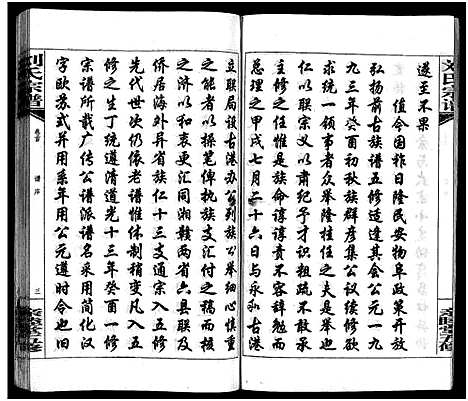 遂至不果
值今国祚日隆民安物阜政策开放
弘扬前古族谱五修适逢其会公元一九
九三年癸酉初秋族群彦集公议续修欲
求统一领事者众举隆桂任之夫是举也
仁以联宗义以肃纪予才识粗疏不敢承
主修之任惟是族命谆谆责不容辞勉而
总理之甲戌七月二十六日与永和古港
立联局设古港办公列族公举细心慎重
之能者以操笔俾执族支汇付之稿而核
之济以和衷更汇同湘赣两省六县联及
侨居海外异省族仁十三支通宗入五修
先代世次仍依老谱惟体制稍变凡入五
修之生丁统遵清道光十三年癸酉一修
宗谱所载广传公谱派谱名采用简化汉
字欧苏式并用系年用公元遵时令也旧
刘氏宗谱
卷首
谱序
三